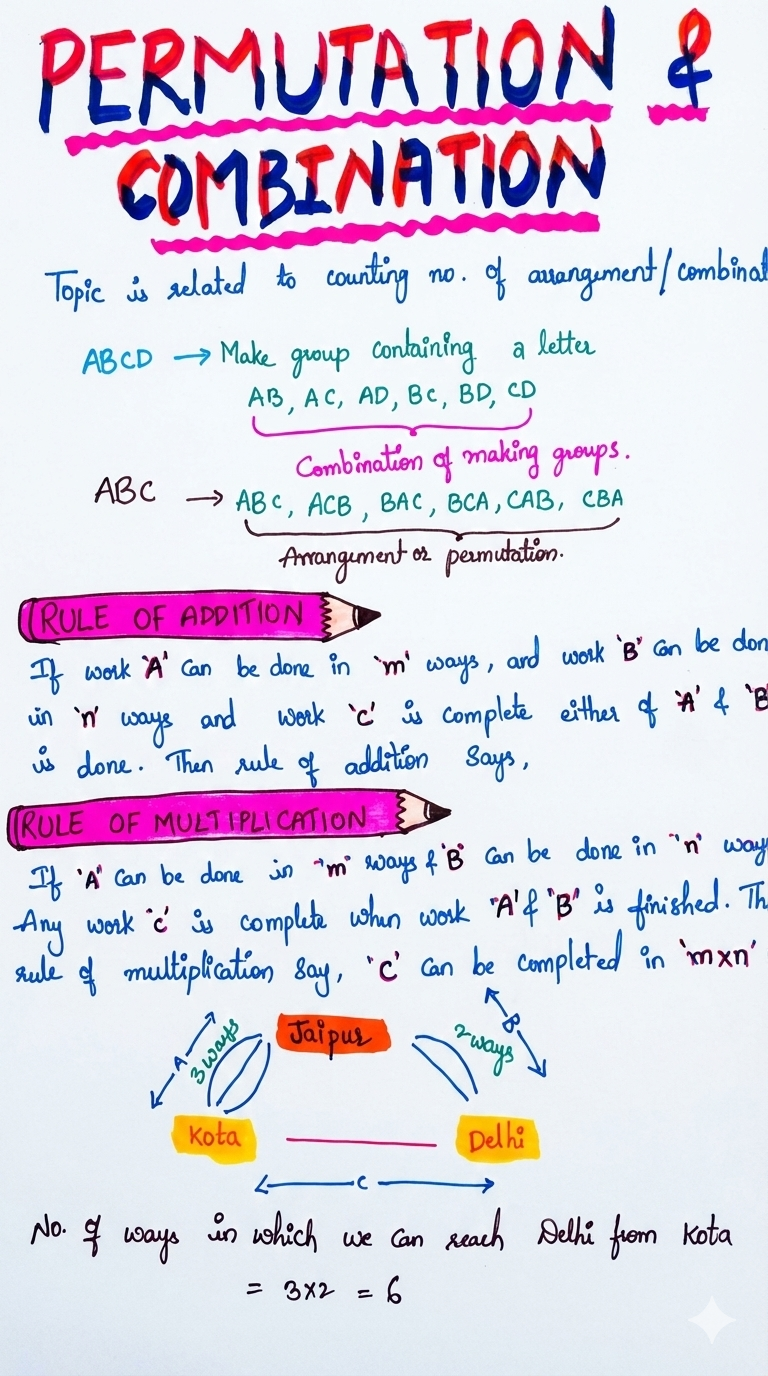 PERMUTATION &
COMBINATION
Topic is related to counting no. of arrangement/combinat
ABCD → Make group containing a letter
AB, AC, AD, BC, BD, CD
Combination of making groups.
ABC → ABC, ACB, BAC, BCA, CAB, CBA
Arrangement or permutation.
RULE OF ADDITION
If work 'A' can be done in 'm' ways, and work 'B' can be don
in 'n' ways and work 'c' is complete either of 'A' & 'B
is done. Then rule of addition says,
RULE OF MULTIPLICATION
If 'A' can be done in "m" ways & 'B' can be done in "n" way
Any work 'c' is complete when work "A' & "B" is finished. Th
rule of multiplication say, "C' can be completed in 'mxn'
Jaipur
A
3 ways
2 ways
B
Kota
Delhi
C
No. of ways in which we can reach Delhi from Kota
= 3×2 = 6